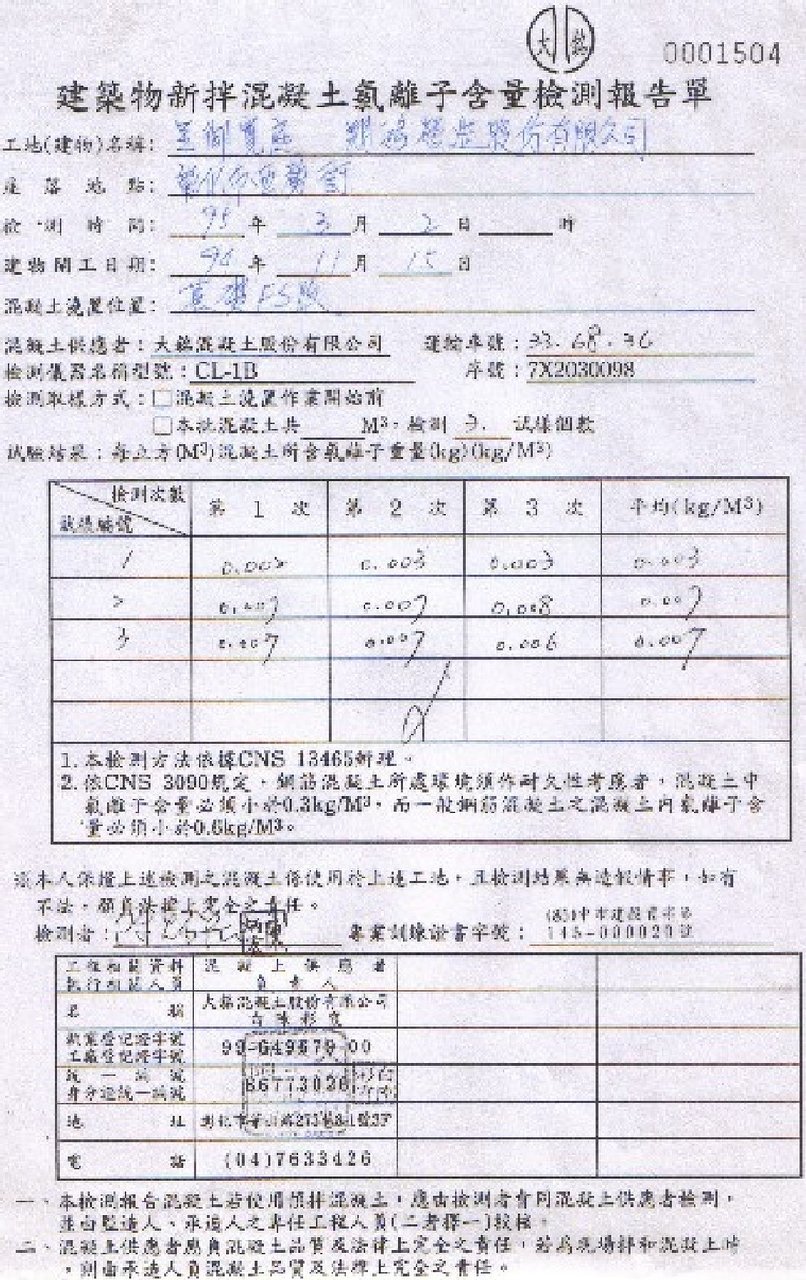 大銘
0001504
建築物新拌混凝土氯離子含量檢測報告單
工地(建物)名稱: 股份有限公司
座落地點:
檢測時間: 95 年 3 月 2 日 時
建物開工日期: 94 年 11 月 15 日
混凝土澆置位置: 基礎FS版
混凝土供應者:大銘混凝土股份有限公司 運輸車號: 33.68.36
檢測儀器名稱型號:CL-1B 序號:7X2030098
檢測取樣方式:□混凝土澆置作業開始前
□本批混凝土共 M³,檢測 3. 試樣個數
試驗結果:每立方(M³)混凝土所含氯離子重量(kg)(kg/M³)
檢測次數 試樣編號 第 1 次 第 2 次 第 3 次 平均(kg/M³)
1 0.002 0.003 0.003 0.003
2 0.007 0.007 0.008 0.007
3 0.007 0.007 0.006 0.007
1.本檢測方法依據CNS 13465辦理。
2.依CNS 3090規定,鋼筋混凝土所處環境須作耐久性考慮者,混凝土中
氯離子含量必須小於0.3kg/M³,而一般鋼筋混凝土之混凝土內氯離子含
量必須小於0.6kg/M³。
※本人保證上述檢測之混凝土係使用於上述工地,且檢測結果無造假情事,如有
不法,願負法律上完全之責任。
檢測者: 專業訓練證書字號: 145-000020號
工程相關資料 執行相關人員 混凝土供應者 負責人
名稱 大銘混凝土股份有限公司
執業登記證字號 工廠登記證字號 99-649679-00
統一編號 身分證統一編號 86773026
地址
電話 (04)7633426
一、本檢測報告混凝土若使用預拌混凝土,應由檢測者會同混凝土供應者檢測,
並由監造人、承造人之專任工程人員(二者擇一)校核。
二、混凝土供應者應負混凝土品質及法律上完全之責任,若為現場拌和混凝土時
,則由承造人負混凝土品質及法律上完全之責任。